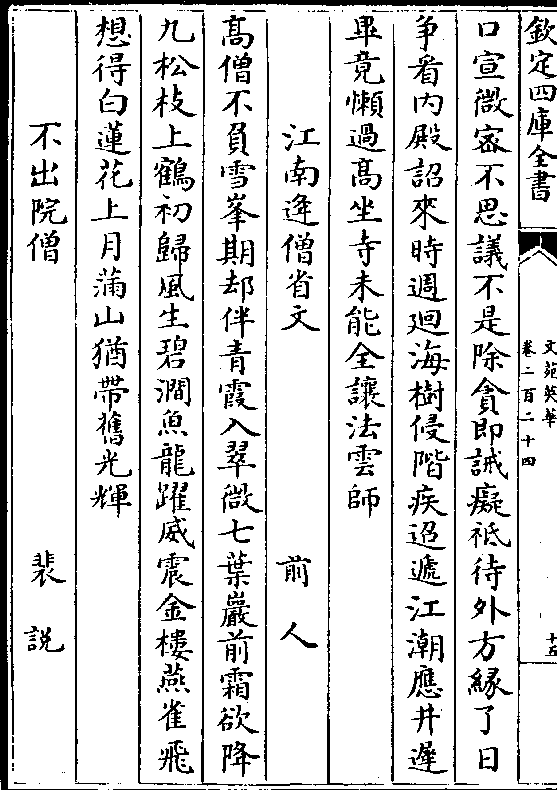 欽定四庫全書
文苑英華
卷二百二十四
十五
口宣微宻不思議不是除貪即誡癡祗待外方緣了日
争看内殿詔來時週廻海樹侵階疾迢遞江潮應井遲
畢竟懶過髙坐寺未能全讓法雲師
江南逢僧省文 前人
髙僧不負雪峯期却伴青霞入翠微七葉巖前霜欲降
九松枝上鶴初歸風生碧澗魚龍躍威震金樓燕雀飛
想得白蓮花上月滿山猶帶舊光輝
不出院僧 裴説